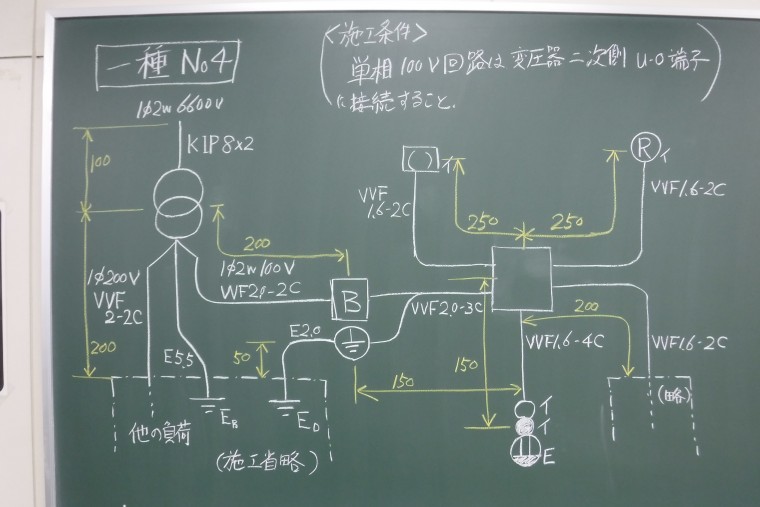 一種 No4
<施工条件>
単相100V回路は変圧器二次側 u-o端子
に接続すること.
1φ2w 6600V
KIP8×2
100
200
1φ200V
VVF
2-2C
1φ2w 100V
VVF2.0-2C
200
E5.5
EB
他の負荷
(施工省略)
B
E2.0
50
ED
VVF2.0-3C
150
150
( )
イ
VVF
1.6-2C
250
250
R イ
VVF1.6-2C
200
VVF1.6-4C
VVF1.6-2C
イ
イ
E
(略)